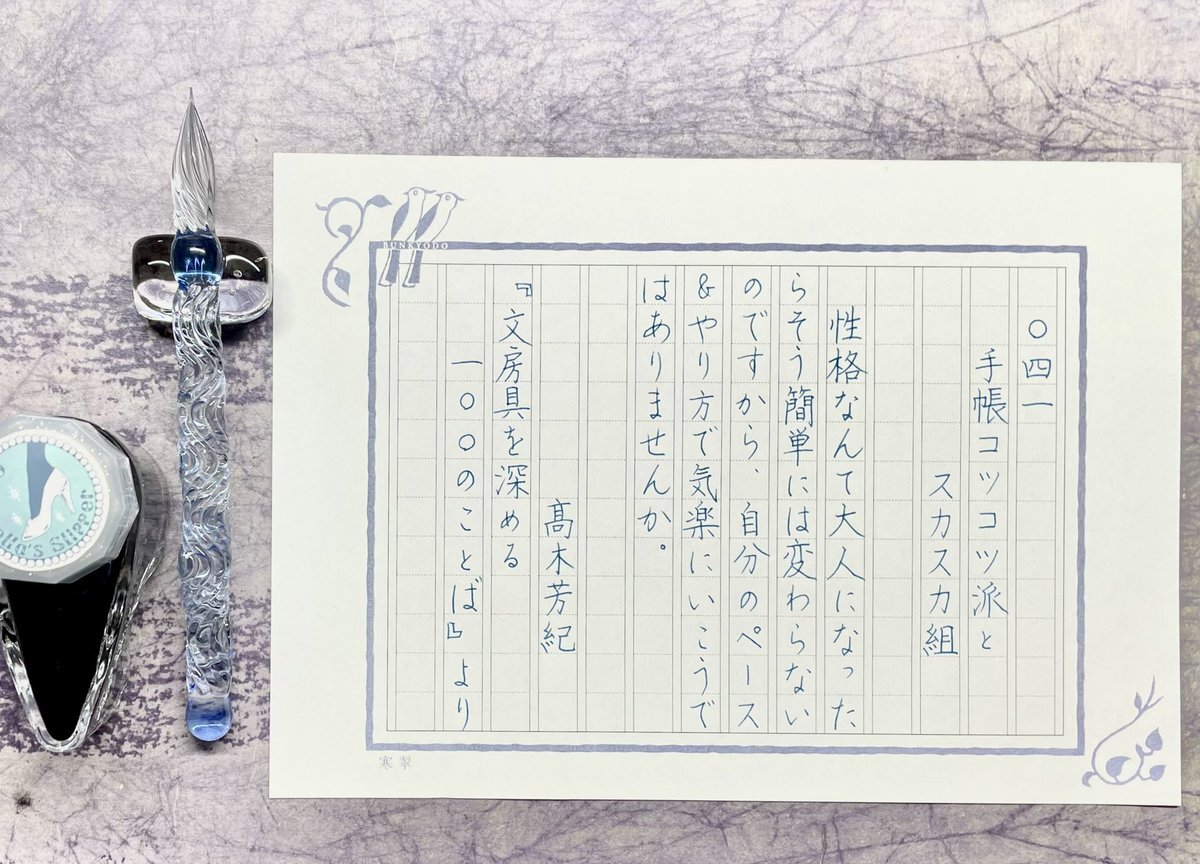 〇四一
手帳コツコツ派と
スカスカ組
性格なんて大人になった
らそう簡単には変わらない
のですから、自分のペース
&やり方で気楽にいこうで
はありませんか。
髙木芳紀
『文房具を深める
一〇〇のことば』より
BUNKYODO
寒翠